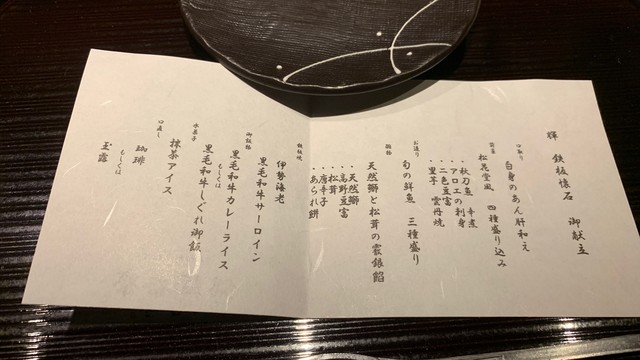 輝 鉄板懐石 御献立
口取り
白身のあん肝和え
前菜
松花堂風 四種盛り込み
・秋刀魚 辛煮
・アロエの刺身
・二色豆富
・里芋 雲丹焼
お造り
旬の鮮魚 三種盛り
鍋物
天然鰤と松茸の霙銀餡
・天然鰤
・高野豆富
・松茸
・唐辛子
・あられ餅
鉄板焼
伊勢海老
黒毛和牛サーロイン
御飯物
黒毛和牛カレーライス
もしくは
黒毛和牛しぐれ御飯
水菓子
抹茶アイス
口直し
珈琲
もしくは
玉露